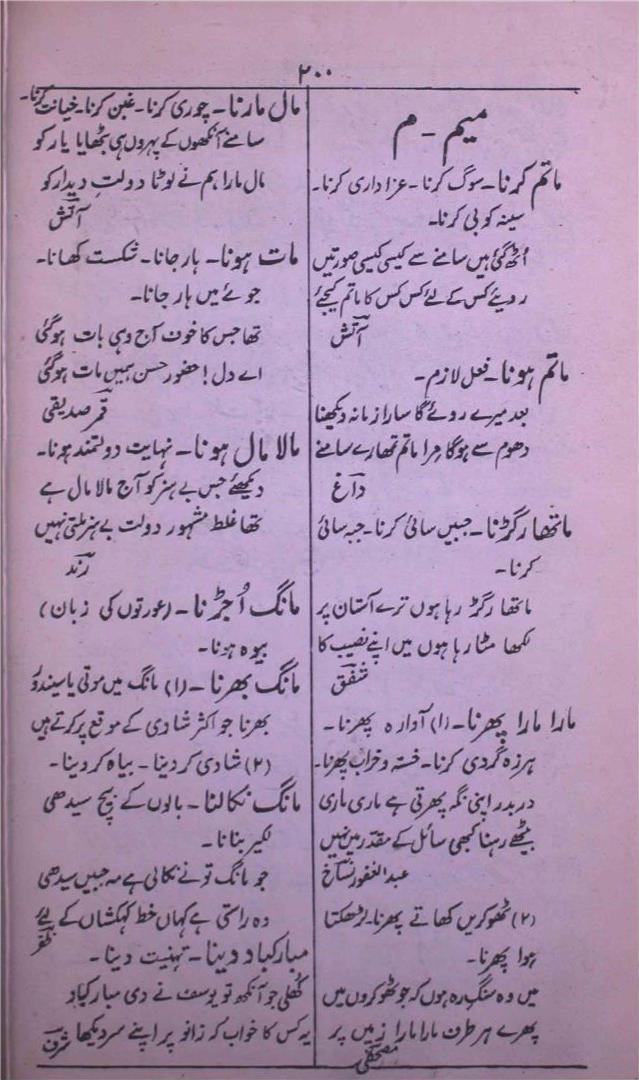 ۲۰۰
میم - م
ماتم کرنا - سوگ کرنا - عزاداری کرنا۔
سینہ کوبی کرنا۔
اُٹھ گئی ہیں سامنے سے کیسی کیسی صورتیں
روئیے کس کے لئے کس کس کا ماتم کیجئے
آتش
ماتم ہونا - فعل لازم۔
بعد میرے روئے گا سارا زمانہ دیکھنا
دھوم سے ہوگا مرا ماتم تمھارے سامنے
داغ
ماتھا رگڑنا - جبیں سائی کرنا - جبہ سائی
کرنا۔
ماتھا رگڑ رہا ہوں ترے آستان پر
لکھا مٹا رہا ہوں میں اپنے نصیب کا
شفق
مارا مارا پھرنا - (۱) آوارہ پھرنا۔
ہرزہ گردی کرنا - خستہ و خراب پھرنا۔
در بدر اپنی نگہ پھرتی ہے ماری ماری
بیٹھے رہنا کبھی سائل کے مقدر میں نہیں
عبدالغفور نساخ
(۲) ٹھوکریں کھاتے پھرنا۔ لڑھکتا
ہوا پھرنا۔
میں وہ سنگِ رہ ہوں کہ جو ٹھوکروں میں
پھرے ہر طرف مارا مارا زمیں پر
مصحفی
مال مارنا - چوری کرنا - غبن کرنا - خیانت کرنا۔
سامنے آنکھوں کے پہروں ہی بٹھایا یار کو
مال مارا ہم نے لوٹا دولتِ دیدار کو
آتش
مات ہونا - ہار جانا - شکست کھانا۔
جوئے میں ہار جانا۔
تھا جس کا خوف آج وہی بات ہوگئی
اے دل! حضور حسن ہمیں مات ہوگئی
قمر صدیقی
مالا مال ہونا - نہایت دولتمند ہونا۔
دیکھئے جس بے ہنر کو آج مالا مال ہے
تھا غلط مشہور دولت بے ہنر ملتی نہیں
رند
مانگ اُجڑنا - (عورتوں کی زبان)
بیوہ ہونا۔
مانگ بھرنا - (۱) مانگ میں موتی یا سیندور
بھرنا جو اکثر شادی کے موقع پر کرتے ہیں
(۲) شادی کر دینا - بیاہ کر دینا۔
مانگ نکالنا - بالوں کے بیچ سیدھی
لکیر بنانا۔
جو مانگ تو نے نکالی ہے مہ جبیں سیدھی
وہ راستی ہے کہاں خط کہکشاں کے لئے
ظفر
مبارکباد دینا - تہنیت دینا۔
کُھلی جو آنکھ تو یوسف نے دی مبارکباد
یہ کس کا خواب کہ زانو پر اپنے سر دیکھا
شرف